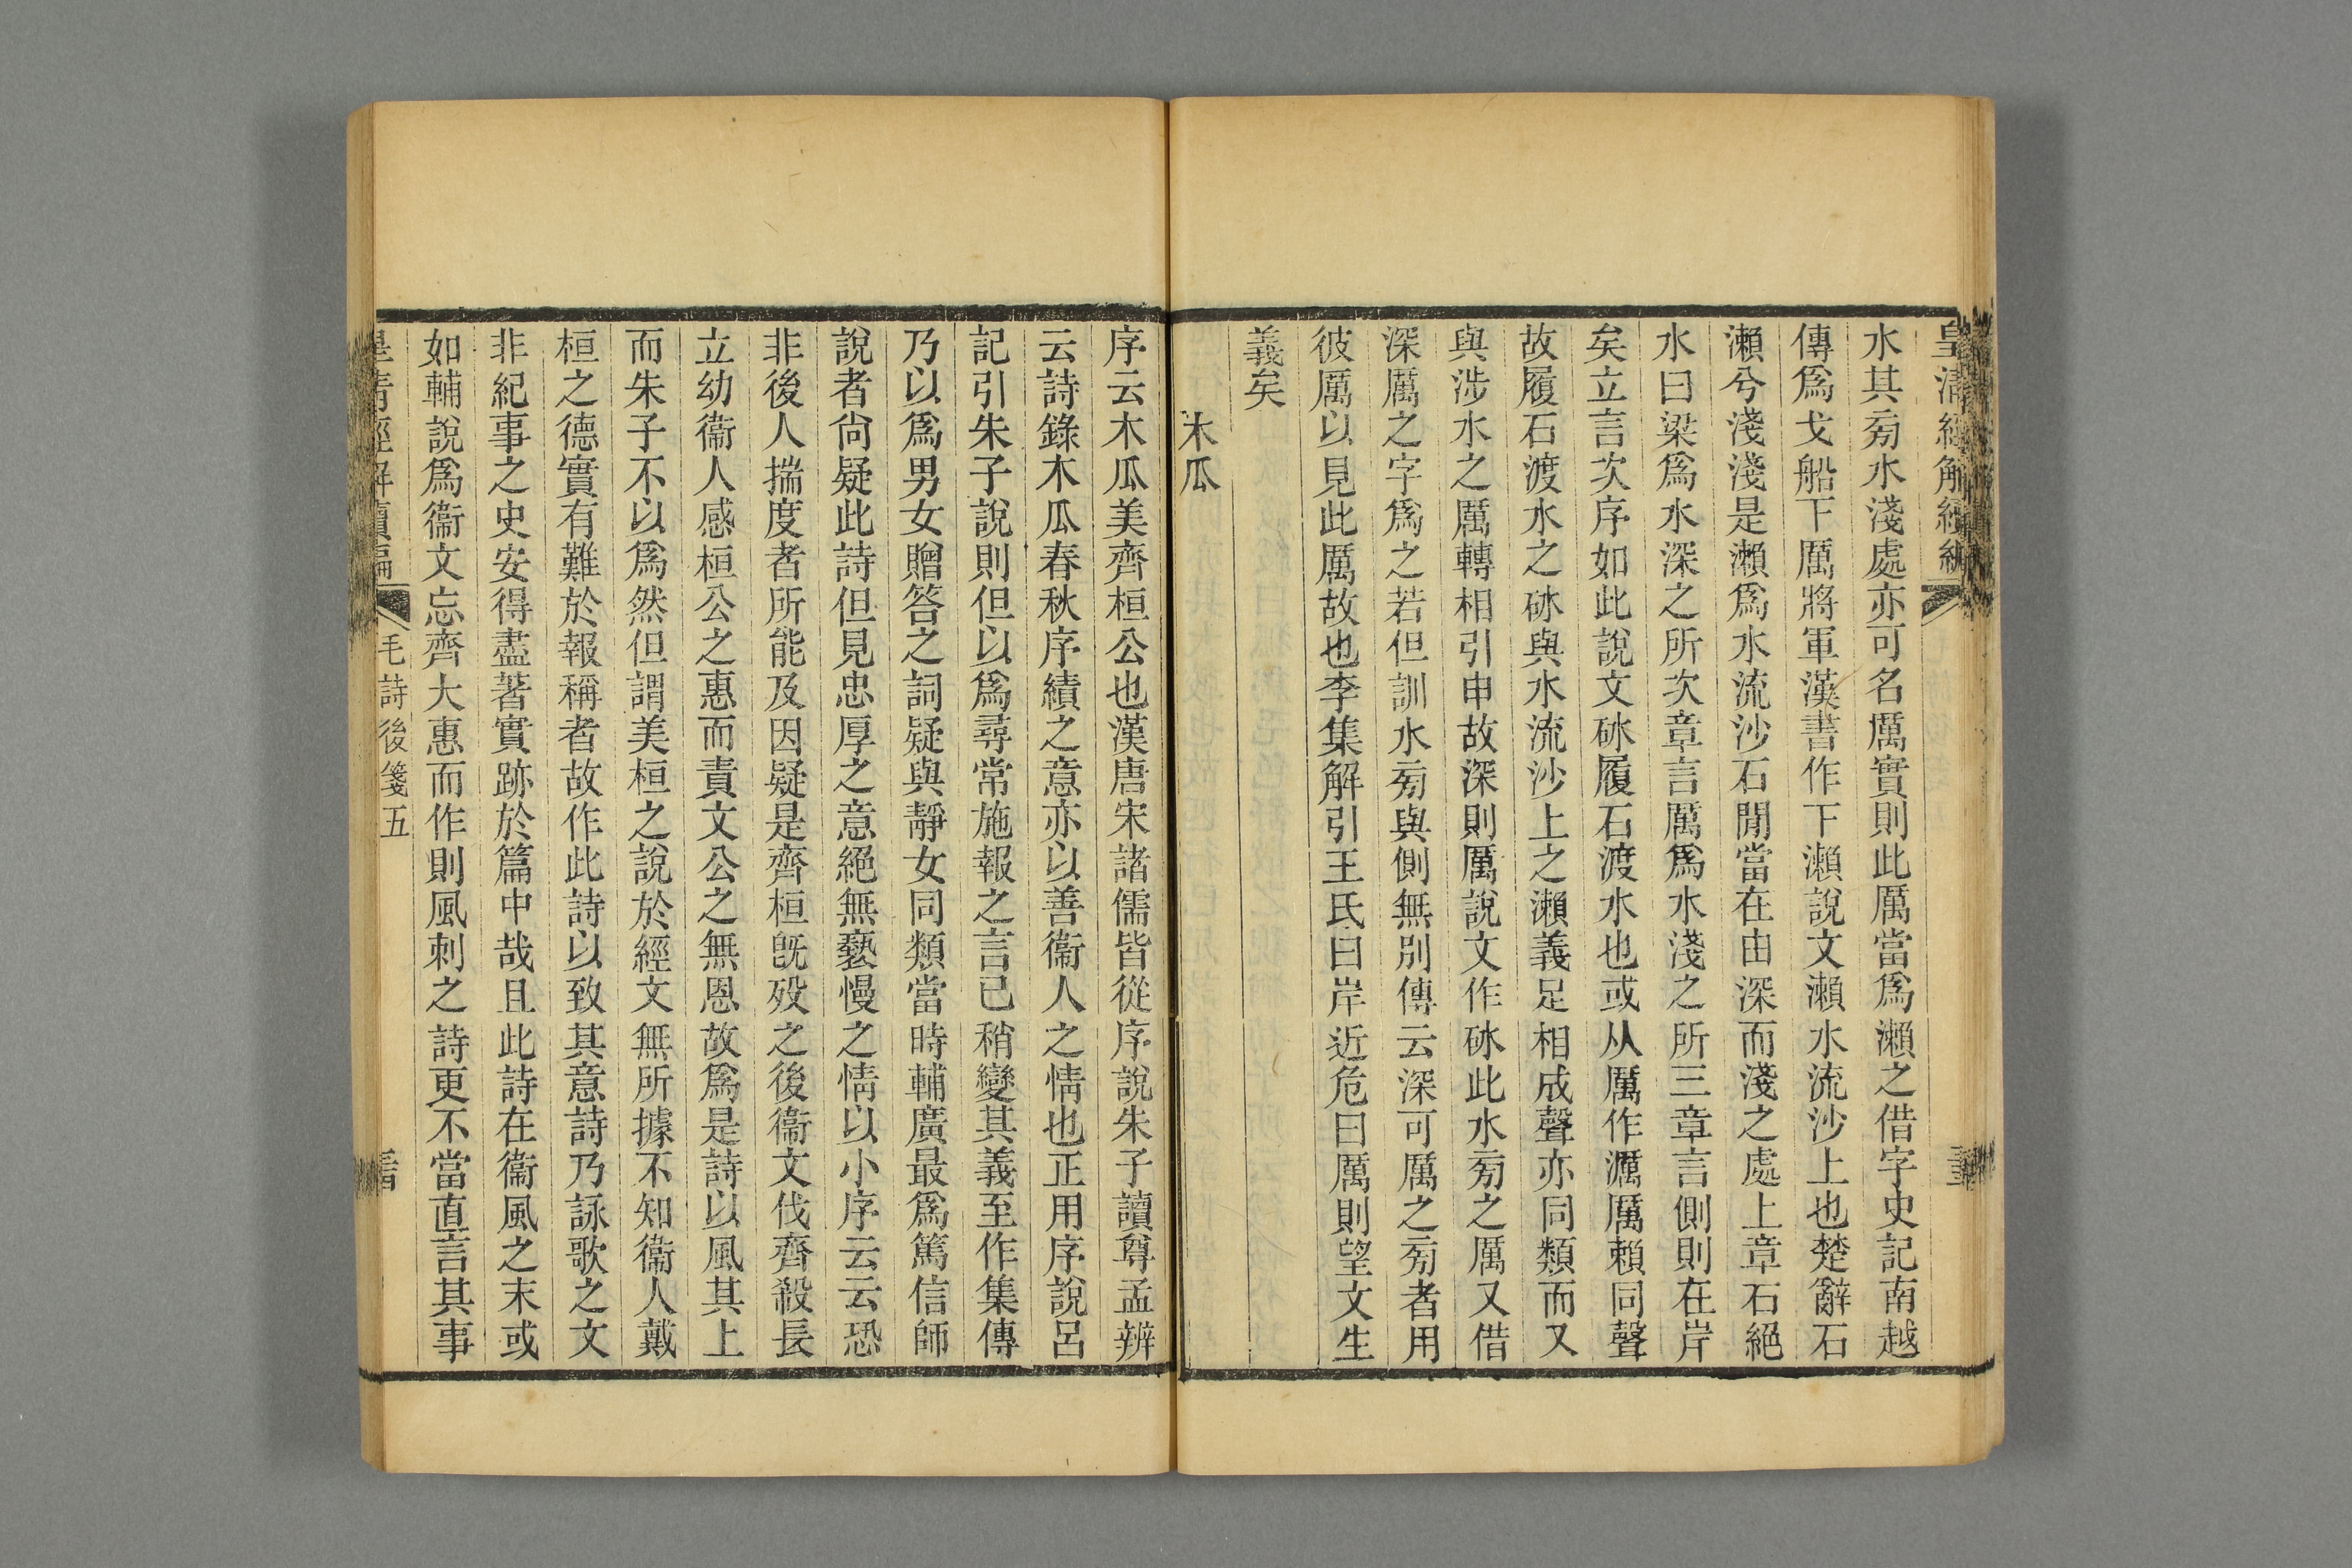 皇清經解續編
水其旁水淺處亦可名厲實則此厲當爲瀨之借字史記南越
傳爲戈船下厲將軍漢書作下瀨說文瀨水流沙上也楚辭石
瀨兮淺淺是瀨爲水流沙石閒當在由深而淺之處上章石絕
水曰梁爲水深之所次章言厲爲水淺之所三章言側則在岸
矣立言次序如此說文砅履石渡水也或从厲作濿厲賴同聲
故履石渡水之砅與水流沙上之瀨義足相成聲亦同類而又
與涉水之厲轉相引申故深則厲說文作砅此水旁之厲又借
深厲之字爲之若但訓水旁與側無別傳云深可厲之旁者用
彼厲以見此厲故也李集解引王氏曰岸近危曰厲則望文生
義矣
木瓜
序云木瓜美齊桓公也漢唐宋諸儒皆從序說朱子讀尊孟辨
云詩錄木瓜春秋序績之意亦以善衞人之情也正用序說呂
記引朱子說則但以爲尋常施報之言已稍變其義至作集傳
乃以爲男女贈答之詞疑與靜女同類當時輔廣最爲篤信師
說者尙疑此詩但見忠厚之意絕無褻慢之情以小序云云恐
非後人揣度者所能及因疑是齊桓旣歿之後衞文伐齊殺長
立幼衞人感桓公之惠而責文公之無恩故爲是詩以風其上
而朱子不以爲然但謂美桓之說於經文無所據不知衞人戴
桓之德實有難於報稱者故作此詩以致其意詩乃詠歌之文
非紀事之史安得盡著實跡於篇中哉且此詩在衞風之末或
如輔說爲衞文忘齊大惠而作則風刺之詩更不當直言其事
皇清經解續編
毛詩後箋五